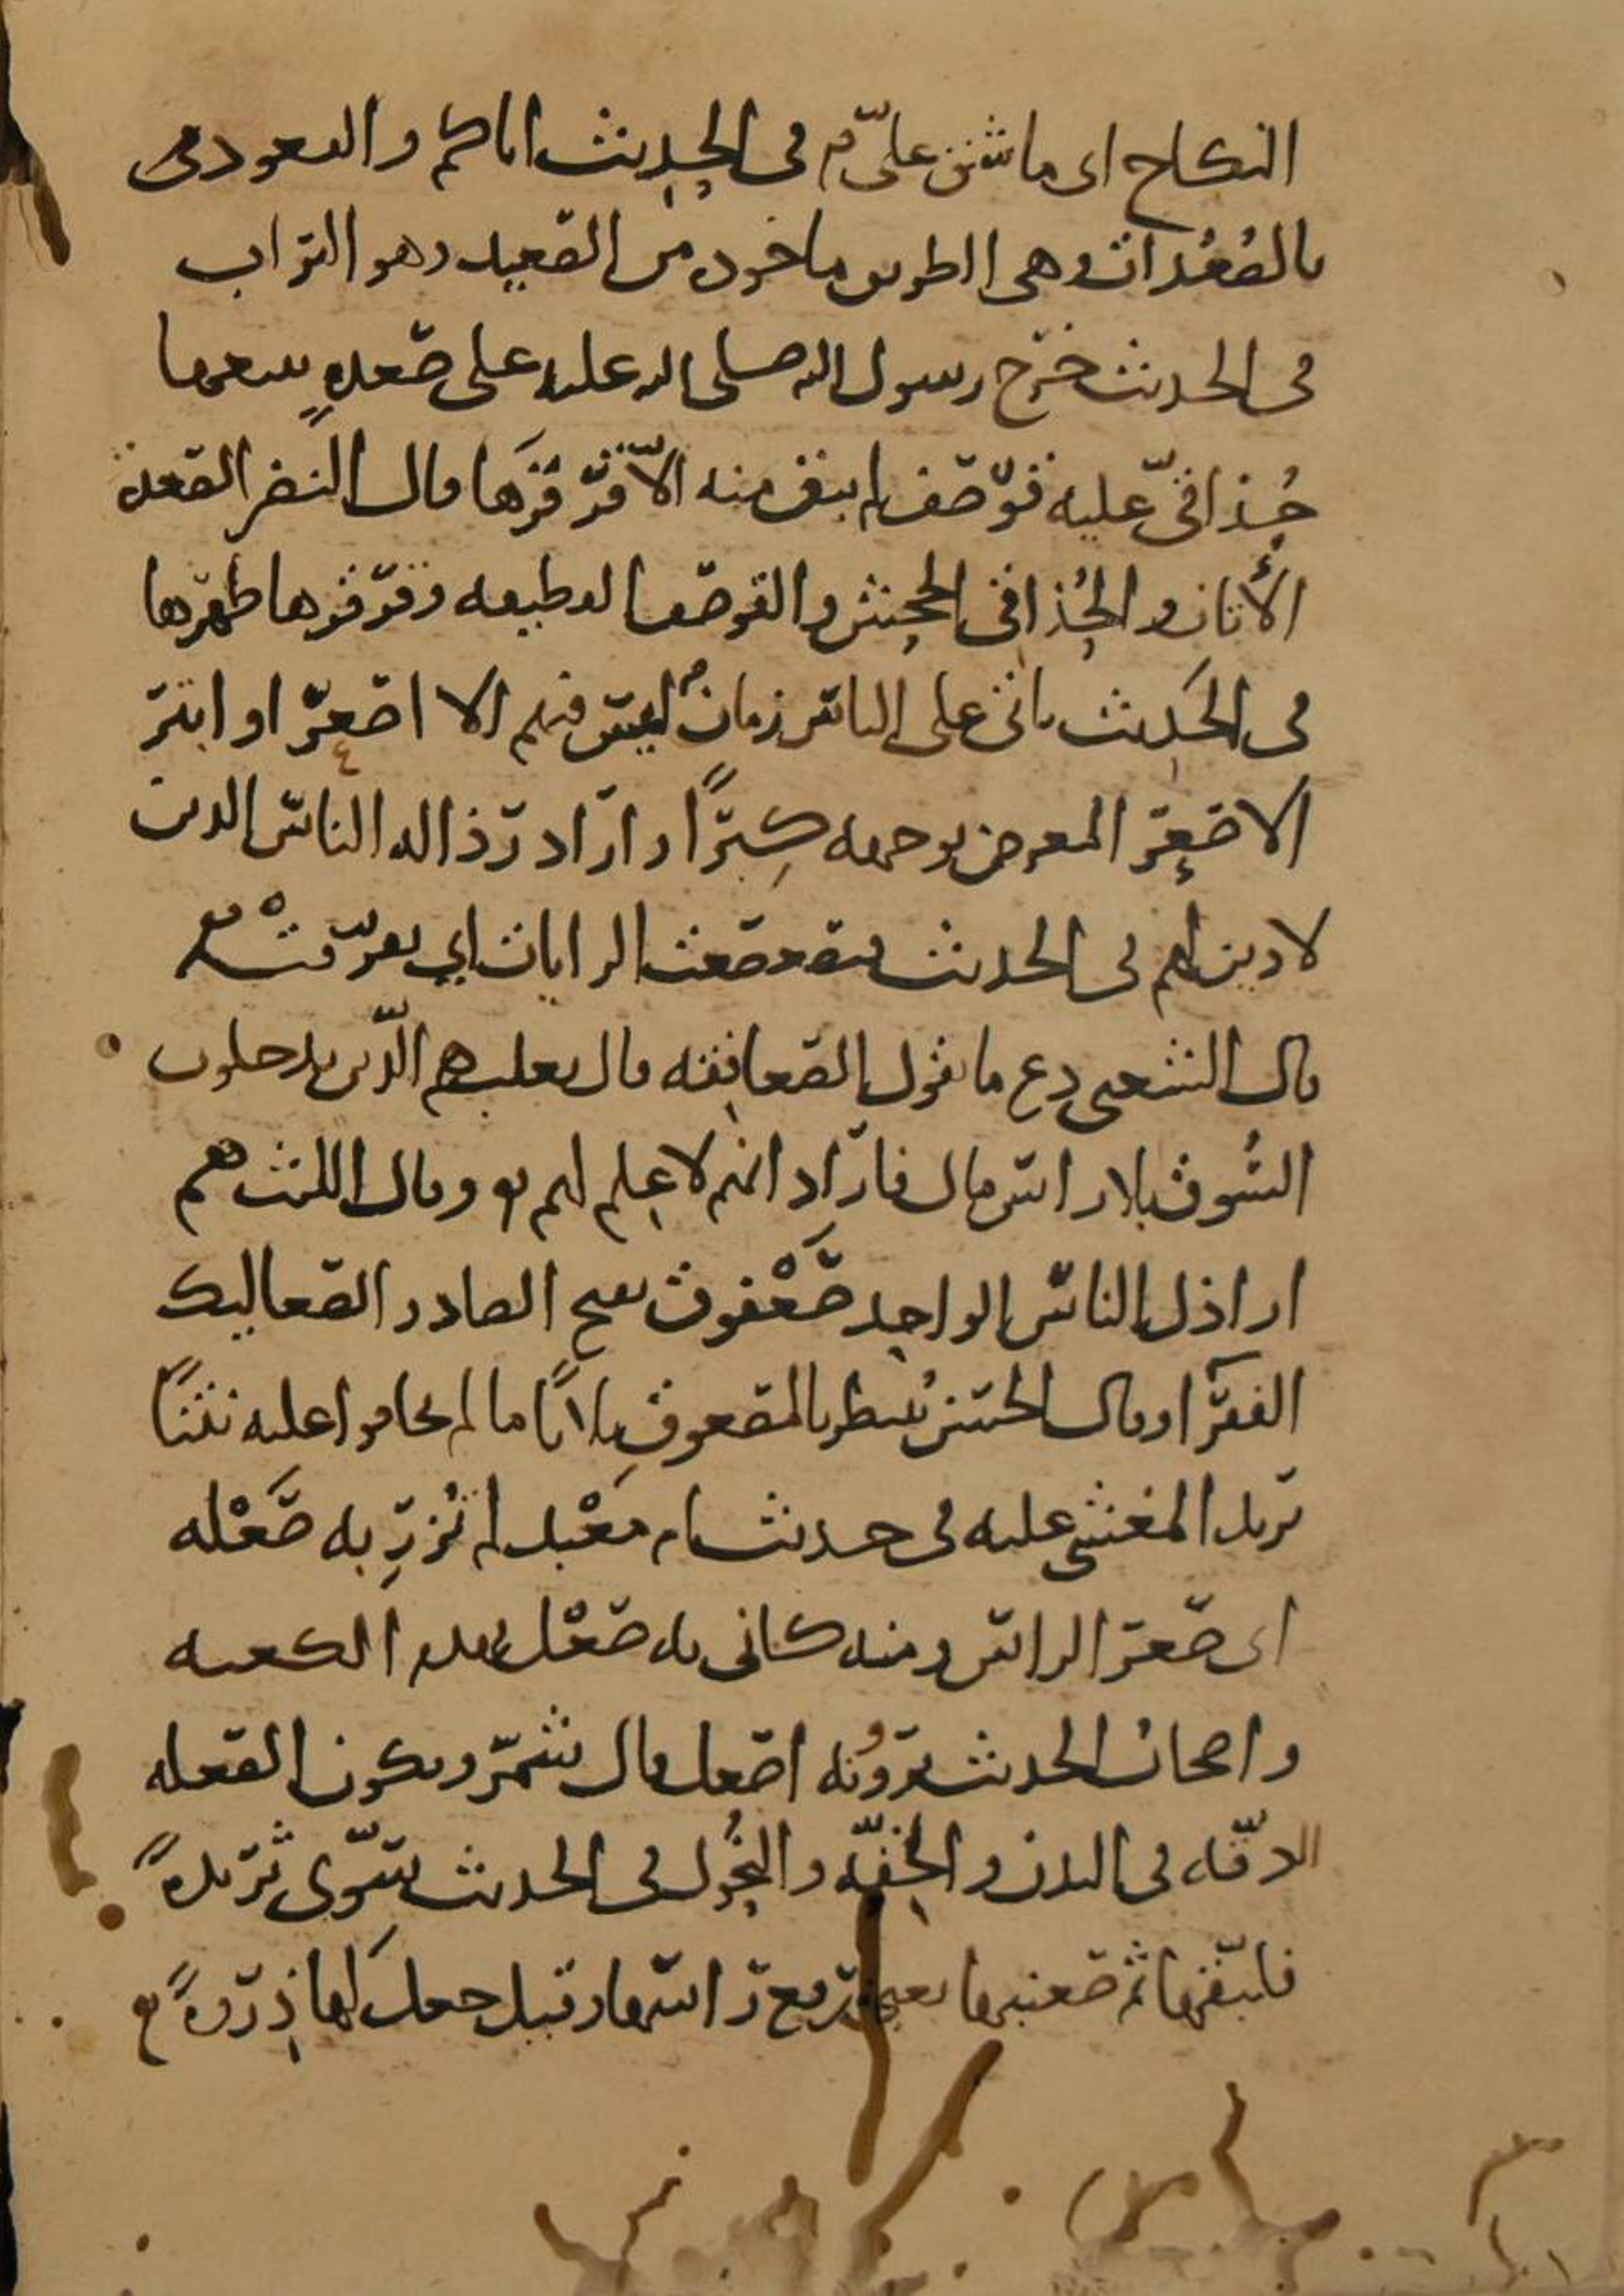 النكاح اى ما شق علىّ م فى الحديث اياكم والقعود فى
بالصُعُدات وهى الطريق ماخوذ من الصعيد وهو التراب
فى الحديث خرج رسول الله صلى الله عليه على صعدةٍ يتبعها
حُذاقىّ عليه قوصف لم يبق منه الا قرقرها قال النضر الصعدة
الأتان والحُذاقى الجحش والقوصف القطيفه وقرقرها ظهرها
فى الحديث ياتى على الناس زمانٌ ليس فيهم الا اصعرّ او ابتر
الاصعر المعرض بوجهه كِبرًا واراد رذاله الناس الذين
لا دين لهم فى الحديث فتصعصعت الرايات اي تفرّقت
قال الشعبى دع ما يقول الصعافقه قال ثعلب هم الّذين يدخلون
السُوق بلا راس مال فاراد انهم لا علم لهم وقال الليث هم
اراذل الناس الواحد صَعْفوق بفتح الصاد والصعاليك
الفقرا وقال الحسن يُنتظر بالمصعوق ثلاثًا ما لم يخافوا عليه نتنًا
يريد المغشى عليه فى حديث ام مَعْبد لم تُزرِ به صَعْله
اى صعر الراس ومنه كانى به صَعْل يهدم الكعبه
واصحاب الحديث يروُونه اصعل قال شمر وتكون الصعله
الدقّه فى البدن والخفّه والنُحُول فى الحديث سَوّى ثريدةً
فلبّقها ثم صعنبها يعنى رفع راسها وقيل جعل لها ذِروةً